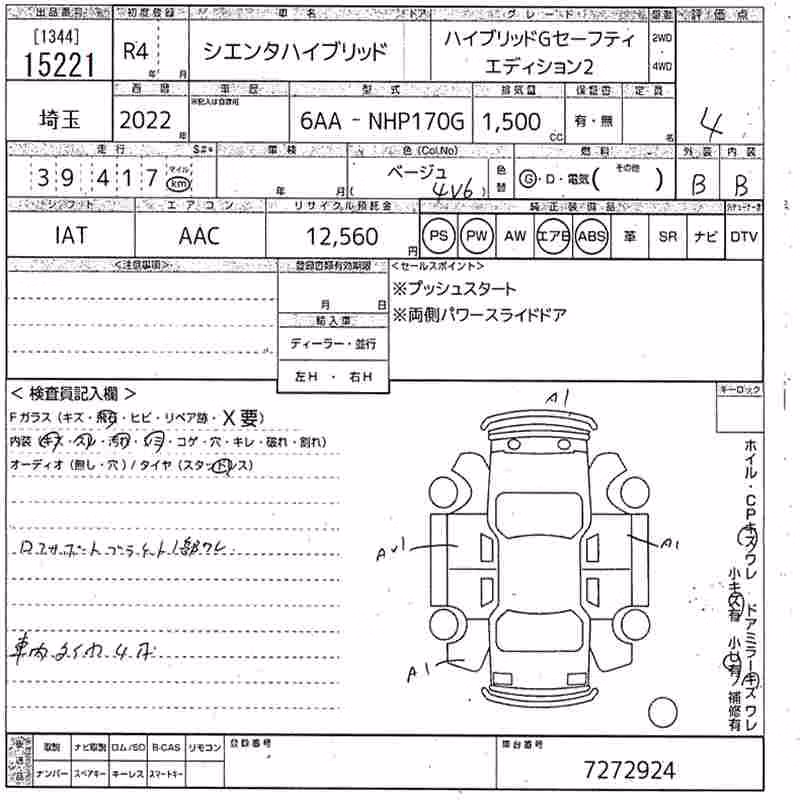 出品番号 初度登録 車名 ドア グレード 駆動 評価点
[1344]
15221
R4 年 月
シエンタハイブリッド
ハイブリッドGセーフティ
エディション2
2WD
4WD
4
西暦 車歴 型式 排気量 保証書 定員
※記入は自家可
埼玉 2022年 6AA - NHP170G 1,500 CC 有・無 名
走行 車検 色(Col.No) 燃料 外装 内装
39417 マイル km
年 月
ベージュ
(4V6)
色替
G・D・電気( その他 )
B B
シフト エアコン リサイクル預託金 純正装備品
IAT AAC 12,560円 PS PW AW エアB ABS 革 SR ナビ DTV
<注意事項> 登録書類有効期限 <セールスポイント>
月 日
※プッシュスタート
※両側パワースライドドア
輸入車
ディーラー・並行
左H ・ 右H
<検査員記入欄>
キーロック
Fガラス(キズ・飛石・ヒビ・リペア跡・X要)
内装(キズ・スレ・汚れ・シミ・コゲ・穴・キレ・破れ・割れ)
オーディオ(無し・穴)/タイヤ(スタッドレス)
A1
AU1
A1
A1
車内タイヤ4本
ホイル・CPキズワレ
小キズ有
ドアミラーキズワレ
小凹有 補修有
取説 ナビ取説 ロム/SD B-CAS リモコン 登録番号 車台番号
ナンバー スペアキー キーレス スマートキー
7272924